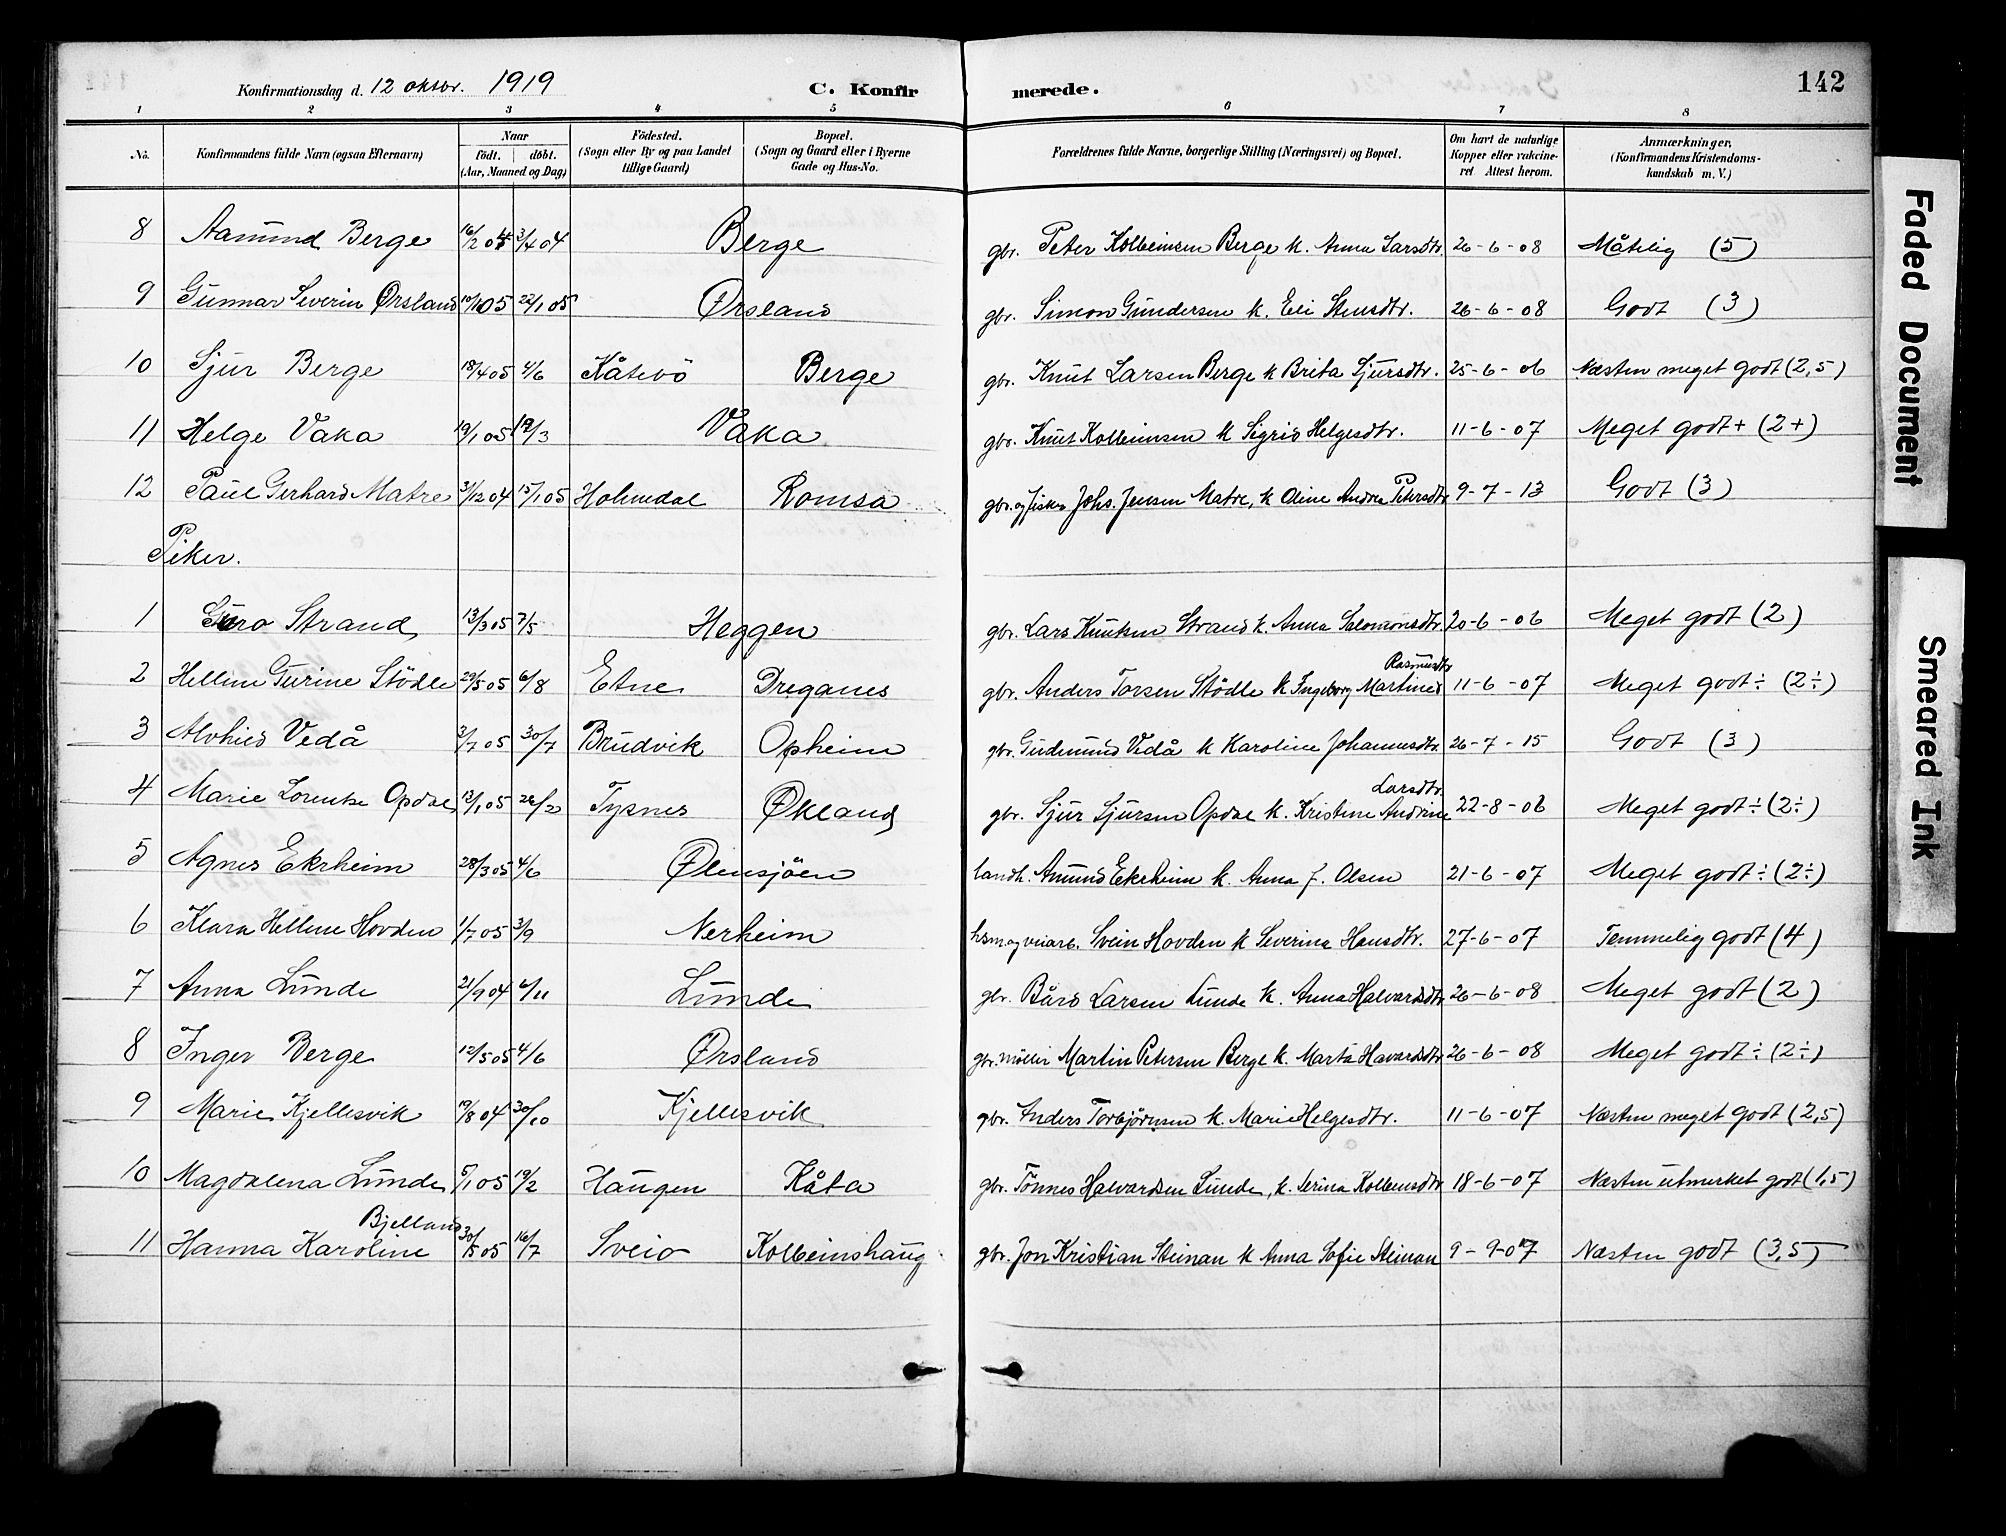 Konfirmationsdag d. 12 oktbr. 1919
C. Konfirmerede.
142
1 2 3 4 5 6 7 8
No.
Konfirmandens fulde Navn (ogsaa Efternavn)
Naar
født. døbt.
(Aar, Maaned og Dag)
Fødested.
(Sogn eller By og paa Landet
tillige Gaard)
Bopæl.
(Sogn og Gaard eller i Byerne
Gade og Hus-No.
Forældrenes fulde Navne, borgerlige Stilling (Næringsvei) og Bopæl.
Om havt de naturlige
Kopper eller vakcine-
ret Attest herom.
Anmærkninger,
(Konfirmandens Kristendoms-
kundskab m. V.)
8 Aamund Berge 16/2 04 3/4 04 Berge gbr. Peter Kolbeinsen Berge k. Anna Larsdtr. 26-6-08 Måtelig (5)
9 Gunnar Severin Ørsland 10/1 05 22/1 05 Ørsland gbr. Simon Gundersen k. Eli Stensdtr. 26-6-08 Godt (3)
10 Sjur Berge 18/4 05 4/6 Kåtevö Berge gbr. Knut Larsen Berge k Brita Sjursdtr. 25-6-06 Næsten meget godt (2,5)
11 Helge Vaka 19/1 05 19/3 Vaka gbr. Knut Kolbeinsen k Sigrid Helgesdtr. 11-6-07 Meget godt + (2+)
12 Paul Gerhard Matre 31/12 04 15/1 05 Holmedal Romsa gbr. og fisker Johs. Jensen Matre, k Oline Andrea Petersdtr 9-7-13 Godt (3)
Piker.
1 Guro Strand 13/3 05 7/5 Heggen gbr. Lars Knutsen Strand k. Anna Salomonsdtr 20-6-06 Meget godt (2)
Rasmusdtr
2 Helline Gurine Stödle 29/5 05 6/8 Etne Dreganes gbr. Anders Torsen Stödle k Ingeborg Martine 11-6-07 Meget godt ÷ (2÷)
3 Alvhild Vedå 3/7 05 30/7 Brudvik Opheim gbr. Gudmund Vedå k Karoline Johannesdtr. 26-7-15 Godt (3)
Larsdtr.
4 Marie Lorentse Opdal 13/1 05 26/2 Tysnes Økland gbr. Sjur Sjursen Opdal k. Kristine Andrine 22-8-06 Meget godt ÷ (2÷)
5 Agnes Ekrheim 28/3 05 4/6 Ølensjöen landh. Amund Ekrheim k. Anna f. Olsen 21-6-07 Meget godt ÷ (2÷)
6 Klara Helline Hovden 1/7 05 3/9 Nerheim hsm og veiarb. Svein Hovden k Severina Hansdtr. 27-6-07 Temmelig godt (4)
7 Anna Lunde 21/9 04 6/11 Lunde gbr. Bård Larsen Lunde k. Anna Halvardsdtr 26-6-08 Meget godt (2)
8 Inger Berge 12/5 05 4/6 Ørsland gbr. möller Martin Petersen Berge k. Marta Havardsdtr 26-6-08 Meget godt ÷ (2÷)
9 Marie Kjellesvik 19/8 04 30/10 Kjellesvik gbr. Anders Torbjörnsen k. Marie Helgesdtr. 11-6-07 Næsten meget godt (2,5)
10 Magdalena Lunde 5/1 05 19/2 Haugen Kåta gbr. Tönnes Halvardsen Lunde, k. Serina Kolbeinsdtr 18-6-07 Næsten utmerket godt (1,5)
Bjelland
11 Hanna Karoline 30/5 05 16/7 Sveio Kolbeinshaug gbr. Jon Kristian Steinan k Anna Sofie Steinan 9-9-07 Næsten godt (3,5)
Faded Document
Smeared Ink